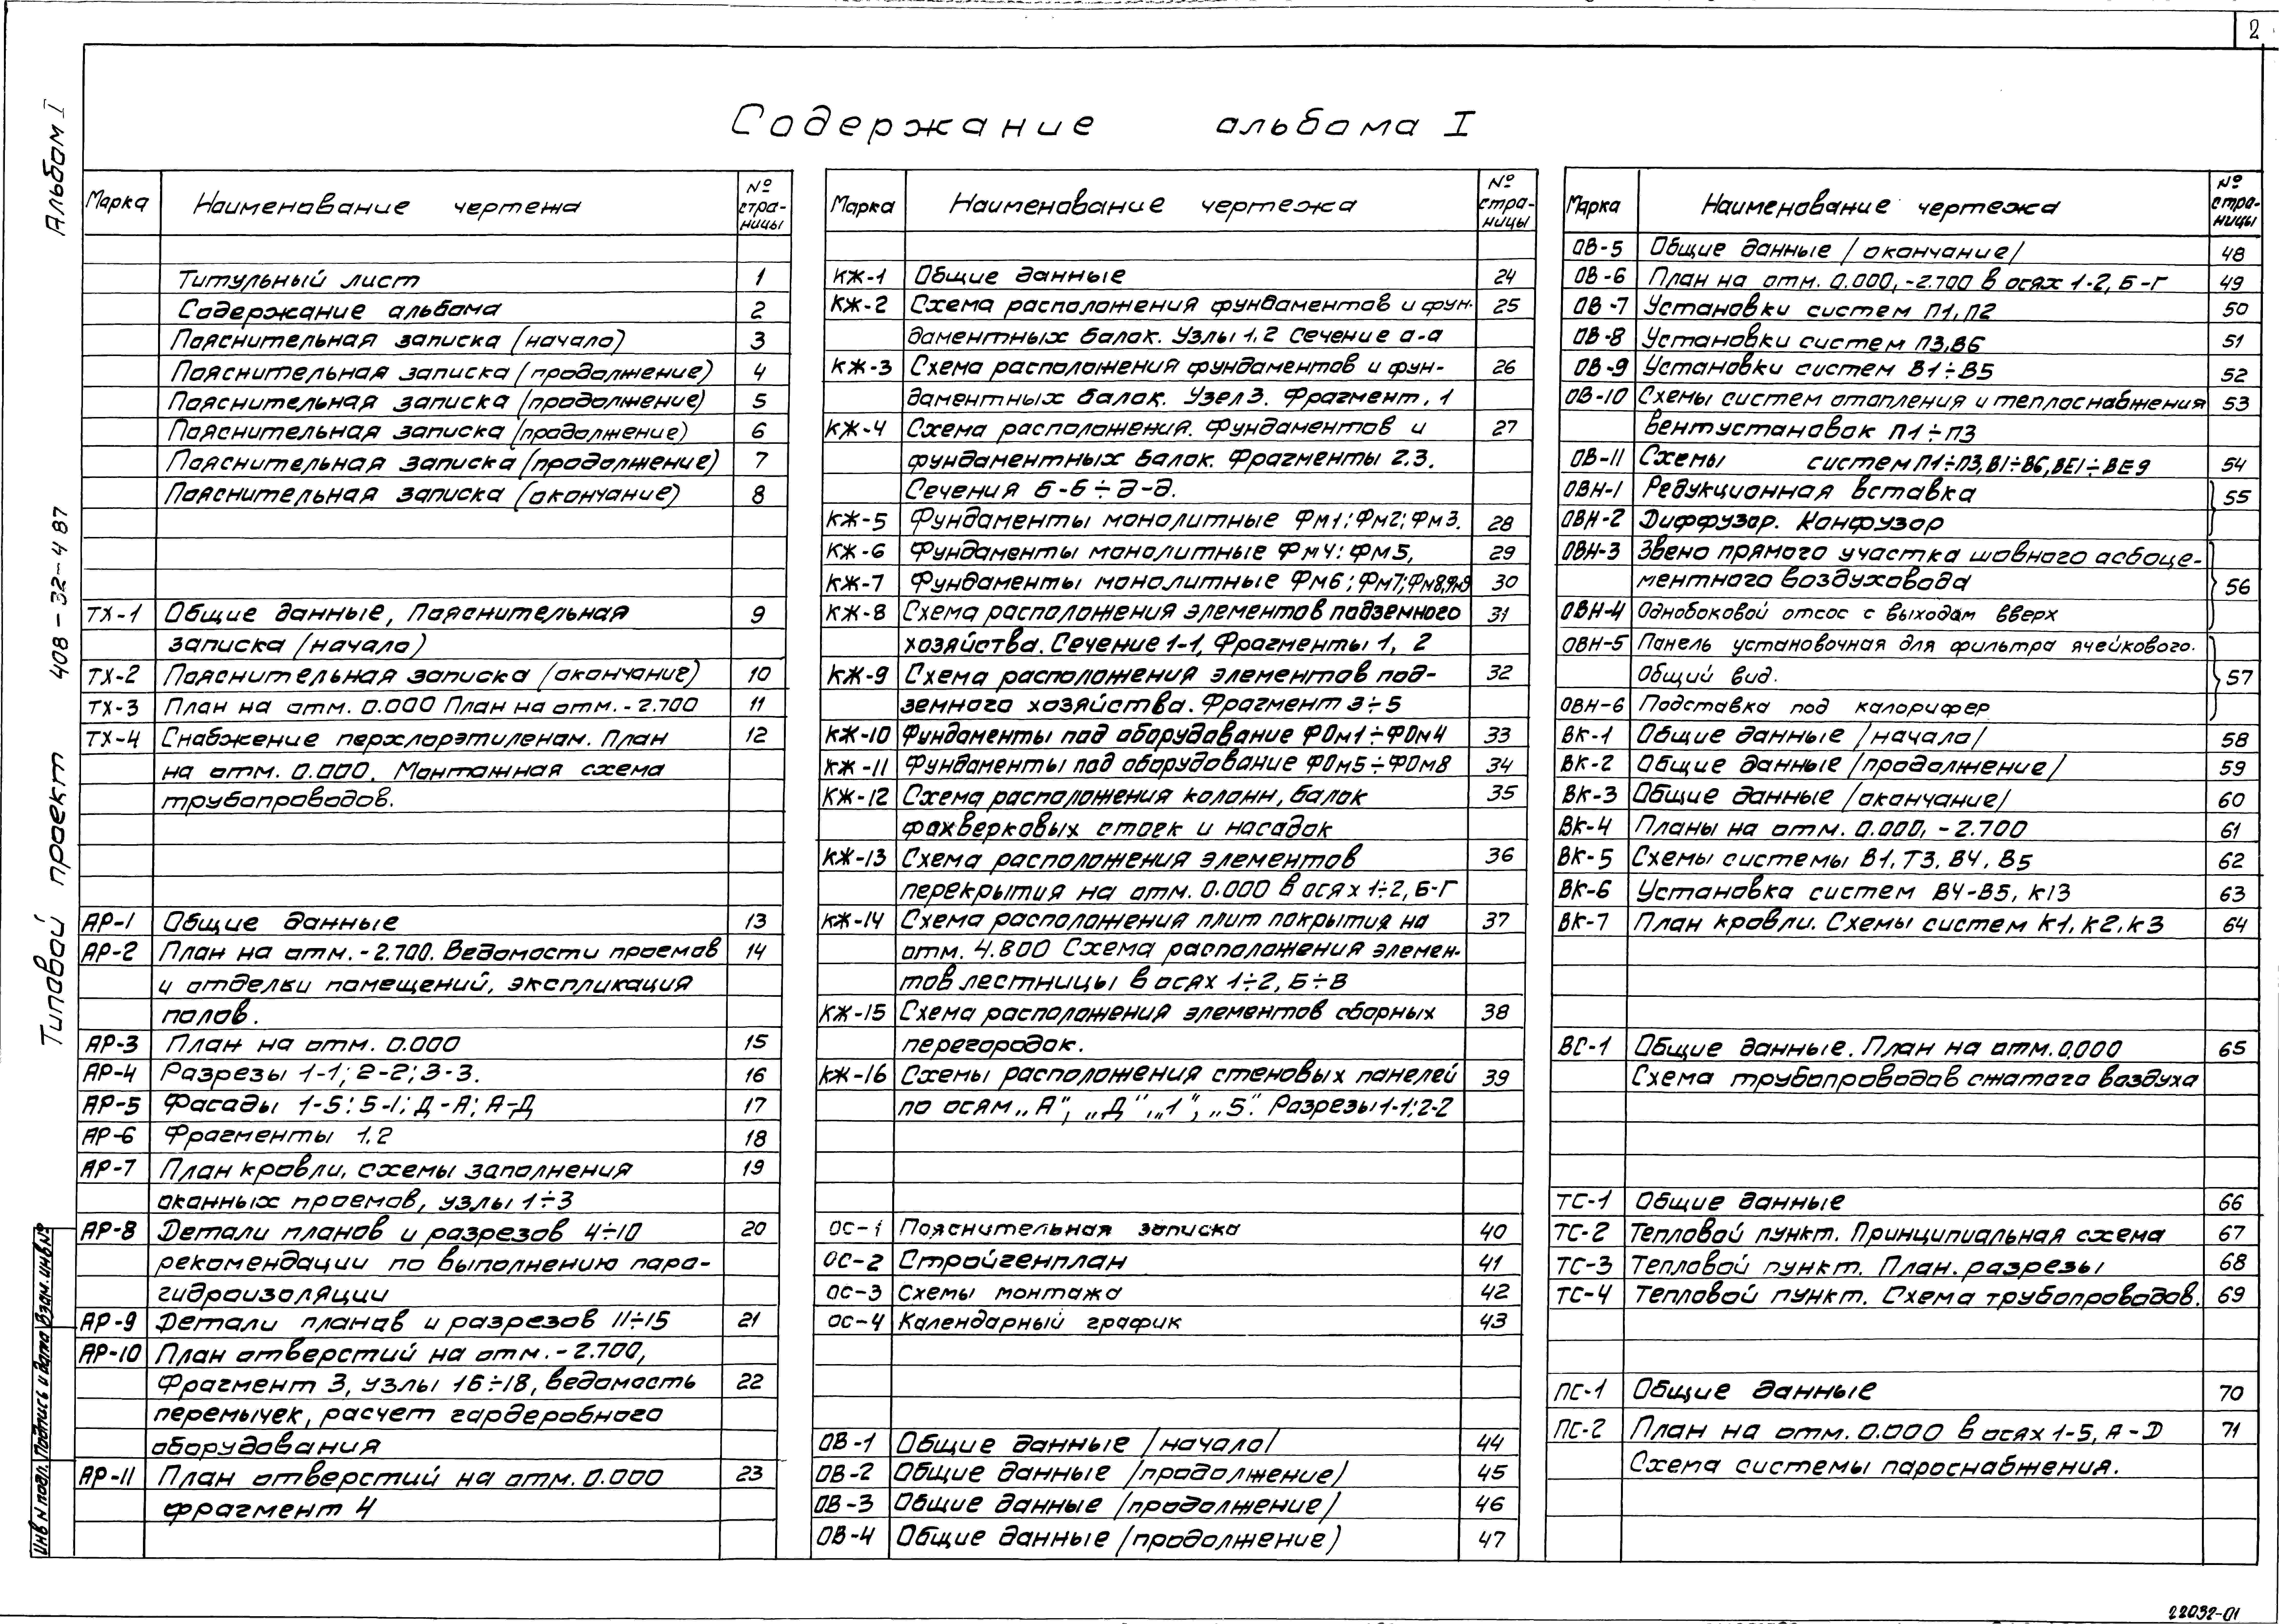 2
Содержание альбома I
Альбом I
Типовой проект 408-32-487
Инв N подл. Подпись и дата Взам.инв№
Марка Наименование чертежа № стра-
ницы
Титульный лист 1
Содержание альбома 2
Пояснительная записка (начало) 3
Пояснительная записка (продолжение) 4
Пояснительная записка (продолжение) 5
Пояснительная записка (продолжение) 6
Пояснительная записка (продолжение) 7
Пояснительная записка (окончание) 8
ТХ-1 Общие данные, Пояснительная 9
записка (начало)
ТХ-2 Пояснительная записка (окончание) 10
ТХ-3 План на отм. 0.000 План на отм. -2.700 11
ТХ-4 Снабжение перхлорэтиленом. План 12
на отм. 0.000. Монтажная схема
трубопроводов.
АР-1 Общие данные 13
АР-2 План на отм. -2.700. Ведомости проемов 14
и отделки помещений, экспликация
полов.
АР-3 План на отм. 0.000 15
АР-4 Разрезы 1-1; 2-2; 3-3. 16
АР-5 Фасады 1-5; 5-1; Д-А; А-Д 17
АР-6 Фрагменты 1.2 18
АР-7 План кровли, схемы заполнения 19
оконных проемов, узлы 1÷3
АР-8 Детали планов и разрезов 4÷10 20
рекомендации по выполнению паро-
гидроизоляции
АР-9 Детали планов и разрезов 11÷15 21
АР-10 План отверстий на отм. -2.700,
Фрагмент 3, узлы 16÷18, ведомость 22
перемычек, расчет гардеробного
оборудования
АР-11 План отверстий на отм. 0.000 23
фрагмент 4
Марка Наименование чертежа № стра-
ницы
КЖ-1 Общие данные 24
КЖ-2 Схема расположения фундаментов и фун- 25
даментных балок. Узлы 1,2 Сечение а-а
КЖ-3 Схема расположения фундаментов и фун- 26
даментных балок. Узел 3. Фрагмент. 1
КЖ-4 Схема расположения. Фундаментов и 27
фундаментных балок. Фрагменты 2.3.
Сечения б-б÷д-д.
КЖ-5 Фундаменты монолитные Фм1; Фм2; Фм3. 28
КЖ-6 Фундаменты монолитные Фм4: Фм5, 29
КЖ-7 Фундаменты монолитные Фм6; Фм7; Фм8,Фм9 30
КЖ-8 Схема расположения элементов подземного 31
хозяйства. Сечение 1-1, Фрагменты 1, 2
КЖ-9 Схема расположения элементов под- 32
земного хозяйства. Фрагмент 3÷5
КЖ-10 Фундаменты под оборудование ФОм1÷ФОм4 33
КЖ-11 Фундаменты под оборудование ФОм5÷ФОм8 34
КЖ-12 Схема расположения колонн, балок 35
фахверковых стоек и насадок
КЖ-13 Схема расположения элементов 36
перекрытия на отм. 0.000 в осях 1÷2, Б-Г
КЖ-14 Схема расположения плит покрытия на 37
отм. 4.800 Схема расположения элемен-
тов лестницы в осях 1÷2, Б÷В
КЖ-15 Схема расположения элементов сборных 38
перегородок.
КЖ-16 Схемы расположения стеновых панелей 39
по осям „А", „Д", „1", „5". Разрезы 1-1; 2-2
ОС-1 Пояснительная записка 40
ОС-2 Стройгенплан 41
ОС-3 Схемы монтажа 42
ОС-4 Календарный график 43
ОВ-1 Общие данные /начало/ 44
ОВ-2 Общие данные /продолжение/ 45
ОВ-3 Общие данные /продолжение/ 46
ОВ-4 Общие данные /продолжение) 47
Марка Наименование чертежа № стра-
ницы
ОВ-5 Общие данные /окончание/ 48
ОВ-6 План на отм. 0.000, -2.700 в осях 1-2, Б-Г 49
ОВ-7 Установки систем П1, П2 50
ОВ-8 Установки систем П3, В6 51
ОВ-9 Установки систем В1÷В5 52
ОВ-10 Схемы систем отопления и теплоснабжения 53
вентустановок П1÷П3
ОВ-11 Схемы систем П1÷П3, В1÷В6, ВЕ1÷ВЕ9 54
ОВН-1 Редукционная вставка 55
ОВН-2 Диффузор. Конфузор
ОВН-3 Звено прямого участка шовного асбоце-
ментного воздуховода 56
ОВН-4 Однобоковой отсос с выходом вверх
ОВН-5 Панель установочная для фильтра ячейкового.
Общий вид. 57
ОВН-6 Подставка под калорифер
ВК-1 Общие данные /начало/ 58
ВК-2 Общие данные /продолжение/ 59
ВК-3 Общие данные /окончание/ 60
ВК-4 Планы на отм. 0.000, -2.700 61
ВК-5 Схемы системы В1, Т3, В4, В5 62
ВК-6 Установка систем В4-В5, К13 63
ВК-7 План кровли. Схемы систем К1, К2, К3 64
ВС-1 Общие данные. План на отм. 0,000 65
Схема трубопроводов сжатого воздуха
ТС-1 Общие данные 66
ТС-2 Тепловой пункт. Принципиальная схема 67
ТС-3 Тепловой пункт. План. разрезы 68
ТС-4 Тепловой пункт. Схема трубопроводов. 69
ПС-1 Общие данные 70
ПС-2 План на отм. 0.000 в осях 1-5, А-D 71
Схема системы пароснабжения.
22032-01